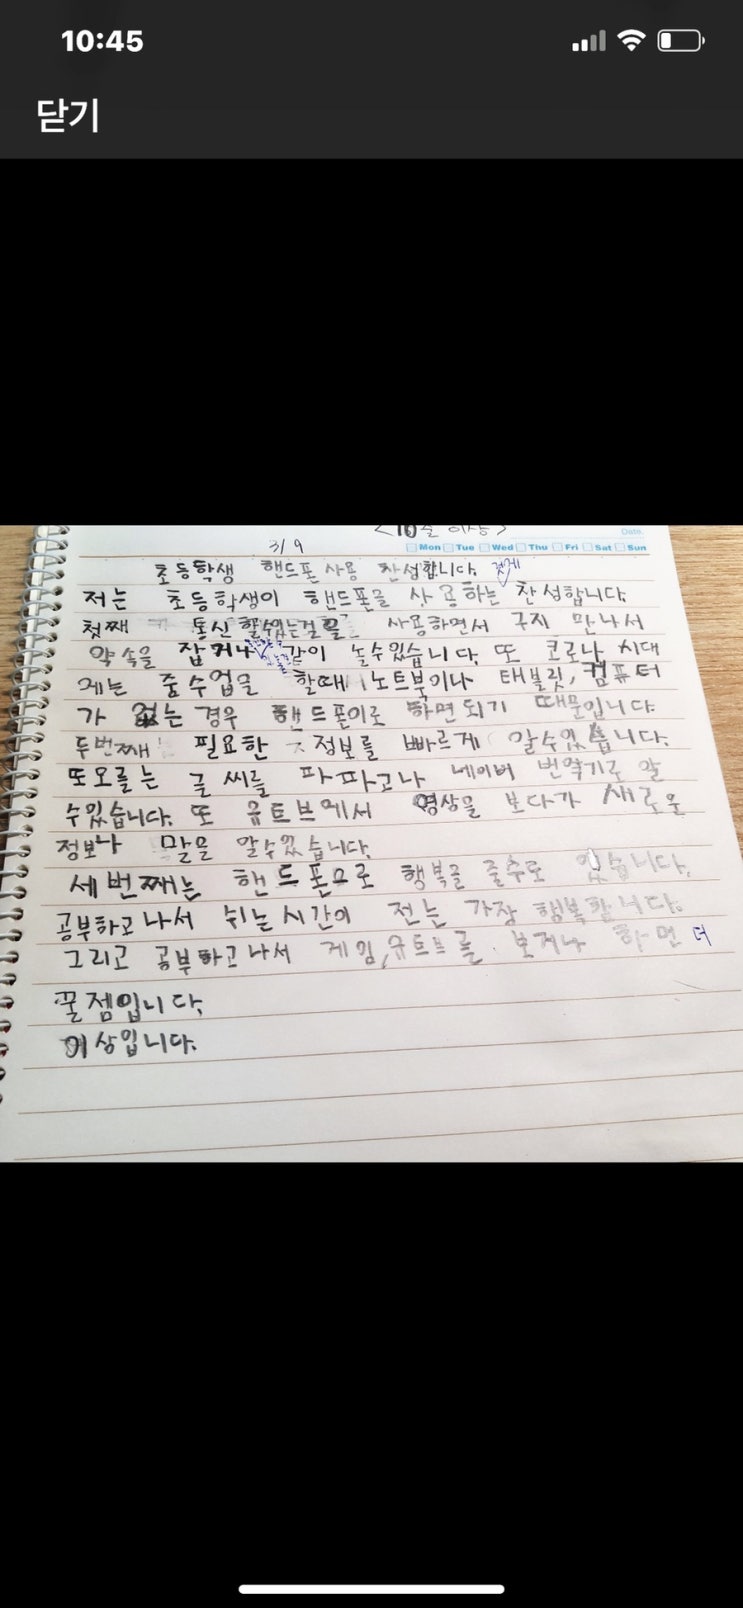 10:45
닫기
<10줄 이상>
Date.
3/9
Mon Tue Wed Thu Fri Sat Sun
초등학생 핸드폰 사용 찬성합니다.
저는 초등학생이 핸드폰을 사용하는 찬성합니다.
첫째 통신 할수있는걸을 사용하면서 구지 만나서
약속을 잡거나 같이 놀수있습니다. 또 코로나 시대
에는 줌수업을 할때 노트북이나 태블릿, 컴퓨터
가 없는 경우 핸드폰이로 하면되기 때문입니다.
두번째 필요한 정보를 빠르게 알수있습니다.
또오를는 글씨를 파파고나 네이버 번역기로 알
수있습니다. 또 유트브에서 영상을 보다가 새로운
정보나 말을 알수있습니다.
세번째는 핸드폰으로 행복을 줄수도 있습니다.
공부하고나서 쉬는시간이 전는 가장 행복합니다.
그리고 공부하고나서 게임,유트브를 보거나 하면 더
꿀젬입니다.
이상입니다.